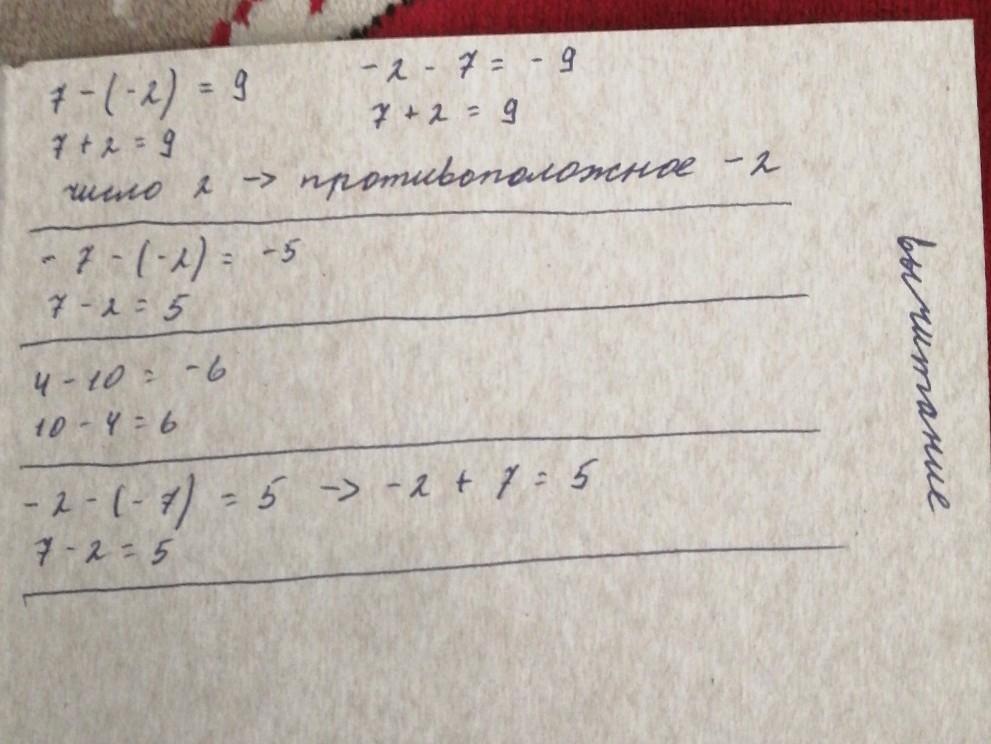 7 - (-2) = 9
7 + 2 = 9
-2 - 7 = -9
7 + 2 = 9
число 2 -> противоположное -2
-7 - (-2) = -5
7 - 2 = 5
4 - 10 = -6
10 - 4 = 6
-2 - (-7) = 5 -> -2 + 7 = 5
7 - 2 = 5
вычитание